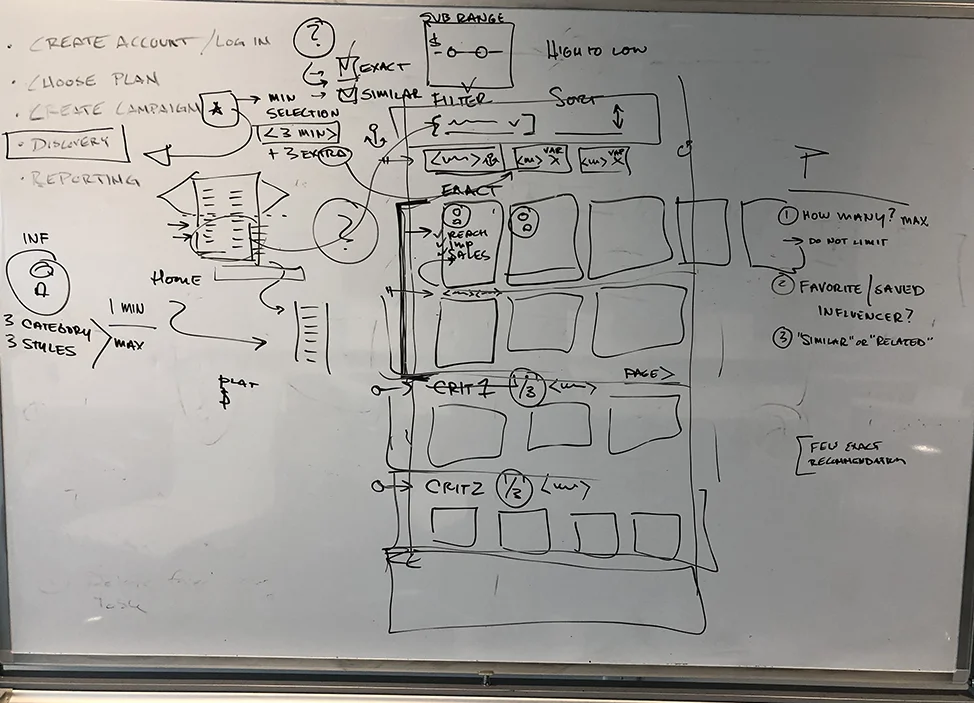 • CREATE ACCOUNT / LOG IN
• CHOOSE PLAN
• CREATE CAMPAIGN
• DISCOVERY
• REPORTING
*
MIN
SELECTION
<3 MIN>
+ 3 EXTRA
?
EXACT
SIMILAR
SUB RANGE
$
HIGH TO LOW
FILTER
SORT
VAR
X
VAR
X
EXACT
REACH
IMP
SALES
?
HOME
INF
3 CATEGORY
3 STYLES
1 MIN
MAX
PLAT
$
CRIT 1
1/3
PAGE >
CRIT 2
1/3
P
① HOW MANY? MAX
→ DO NOT LIMIT
② FAVORITE / SAVED
INFLUENCER?
③ "SIMILAR" OR "RELATED"
FEW EXACT
RECOMMENDATION